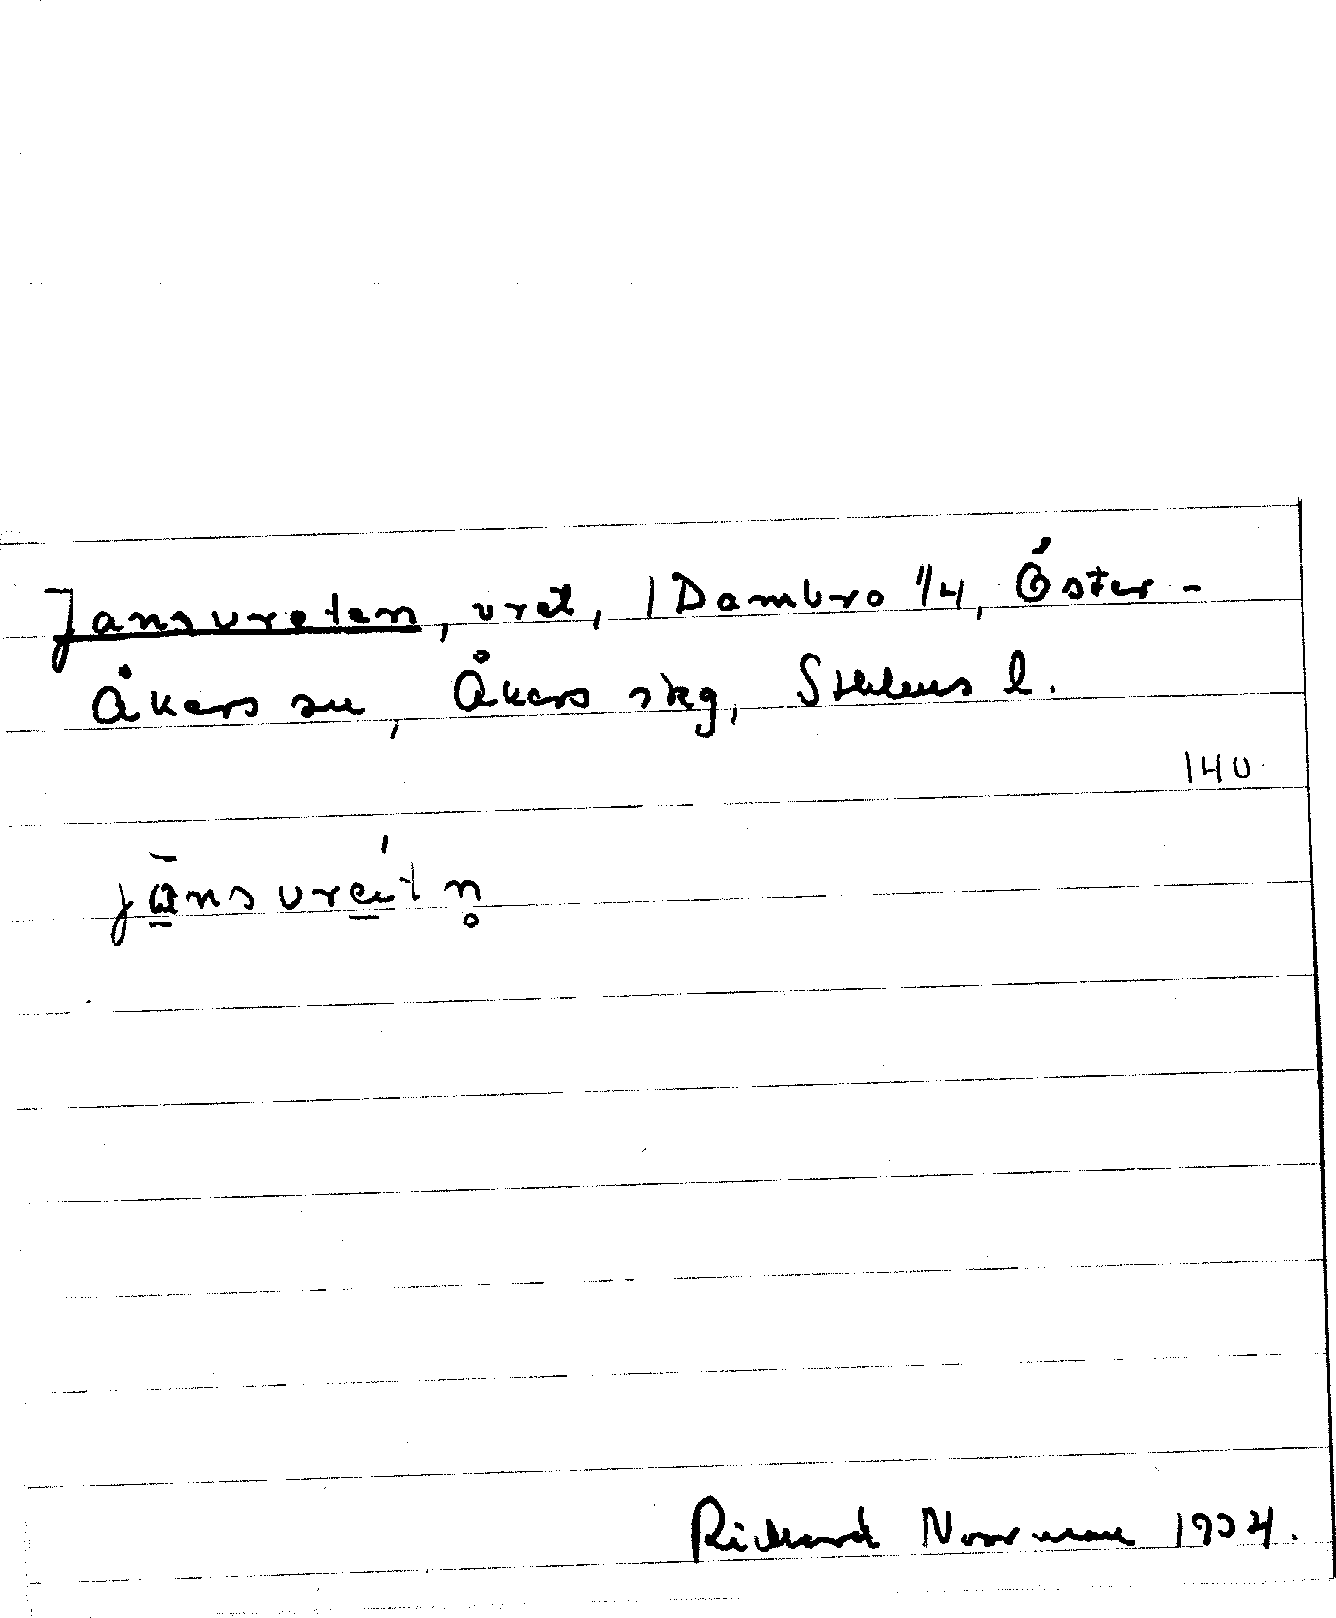 Jansvreten, vret, 1 Dambro 1/4, Öster-
Åkers sn, Åkers skg, Sthlms l.
140
Rickard Norrman 1934.